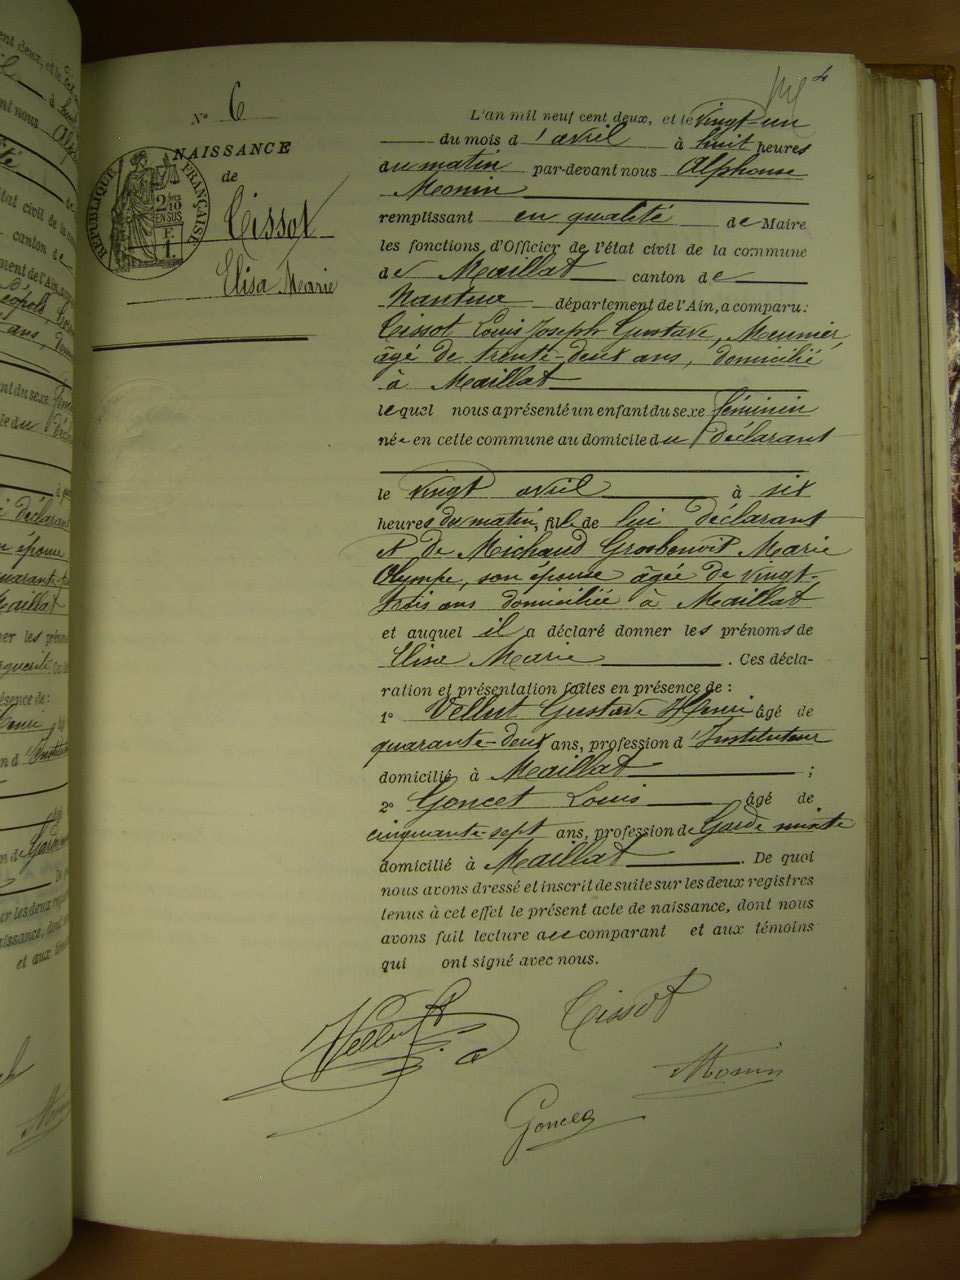 4
N° 6
NAISSANCE
de
Tissot
Elisa Marie
RÉPUBLIQUE FRANÇAISE
2/10
EN SUS
L'an mil neuf cent deux, et le vingt-un
du mois d'avril à huit heures
du matin par-devant nous Alphonse
Monin
remplissant en qualité de Maire
les fonctions d'Officier de l'état civil de la commune
de Maillat canton de
Nantua département de l'Ain, a comparu:
Tissot Louis Joseph Gustave, Meunier,
âgé de trente-deux ans, domicilié
à Maillat
lequel nous a présenté un enfant du sexe féminin
née en cette commune au domicile du déclarant
le vingt avril à six
heures du matin, fille de lui déclarant
et de Michaud Grosbenoit Marie
Olympe, son épouse âgée de vingt-
trois ans domiciliée à Maillat
et auquel il a déclaré donner les prénoms de
Elisa Marie. Ces décla-
ration et présentation faites en présence de:
1° Vellut Gustave Henri âgé de
quarante-deux ans, profession d'Instituteur
domicilié à Maillat;
2° Goncet Louis âgé de
cinquante-sept ans, profession de Garde mixte
domicilié à Maillat. De quoi
nous avons dressé et inscrit de suite sur les deux registres
tenus à cet effet le présent acte de naissance, dont nous
avons fait lecture au comparant et aux témoins
qui ont signé avec nous.
Vellut
Tissot
Monin
Goncet